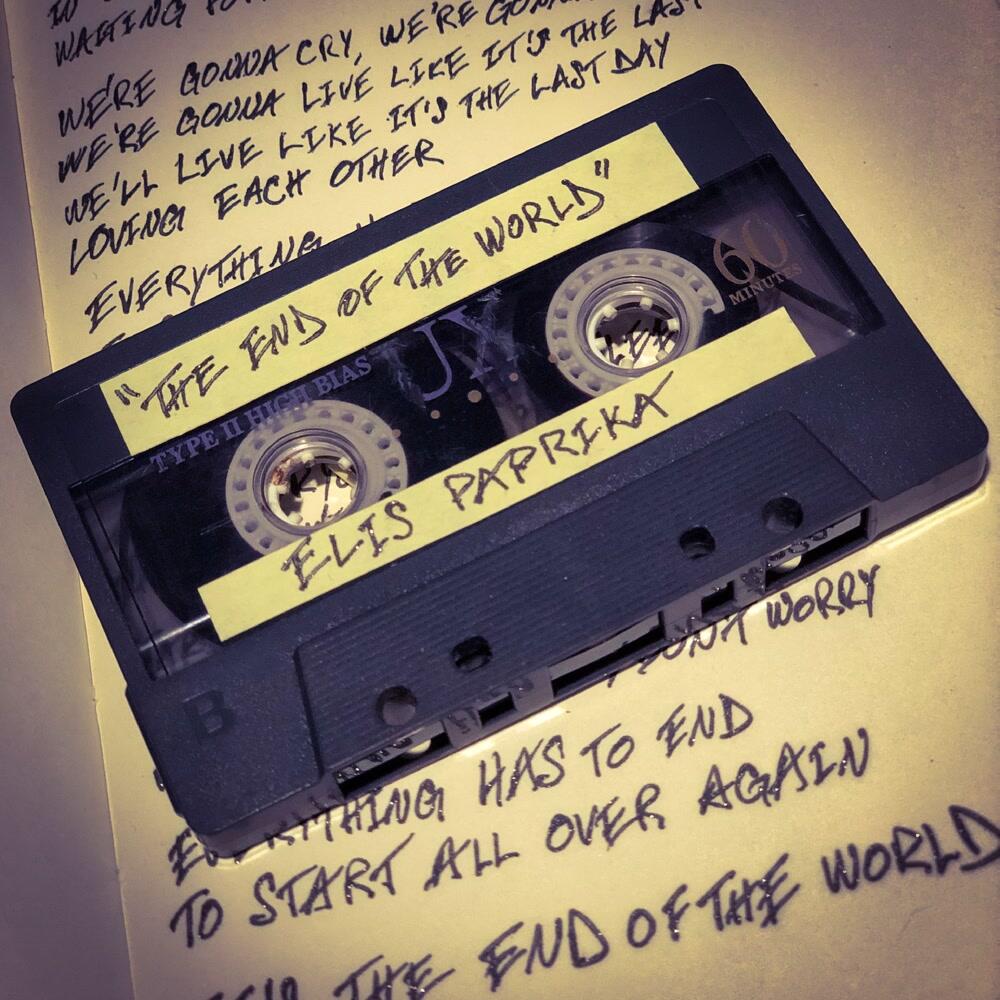 WAITING
WE'RE GONNA CRY, WE'RE GONNA
WE'RE GONNA LIVE LIKE IT'S THE LAST
WE'LL LIVE LIKE IT'S THE LAST DAY
LOVING EACH OTHER
EVERYTHING
"THE END OF THE WORLD"
TYPE II HIGH BIAS
UX
60
MINUTES
ELIS PAPRIKA
B
DON'T WORRY
EVERYTHING HAS TO END
TO START ALL OVER AGAIN
THE END OF THE WORLD